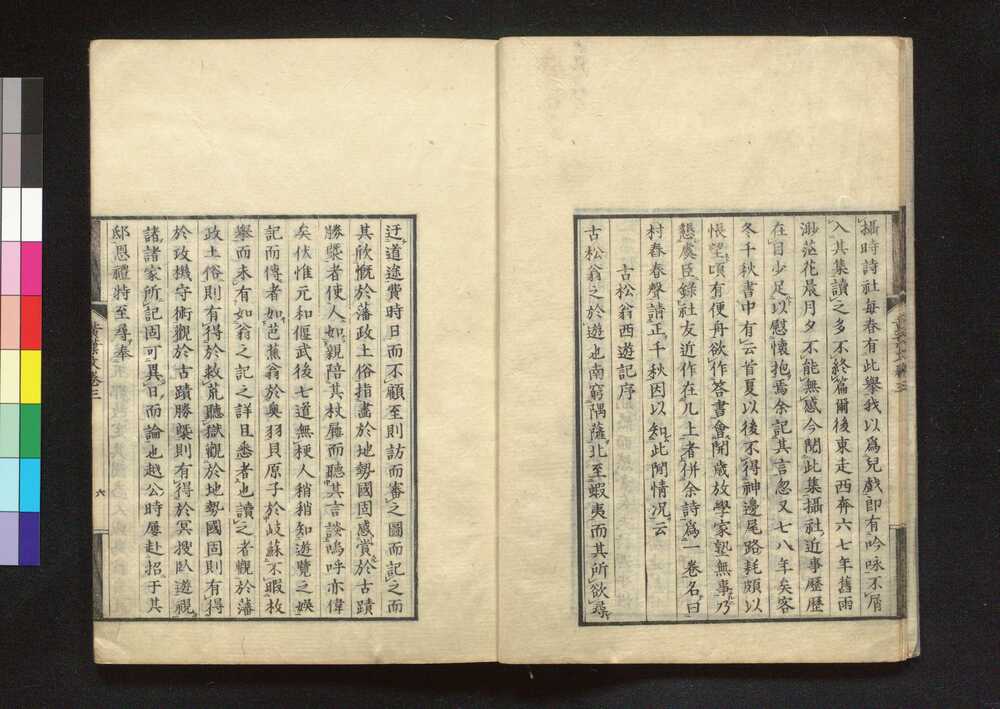 攝時詩社每春有此擧我以爲兒戲卽有吟咏不屑
入其集讀之多不終篇爾後東走西奔六七年舊雨
渺茫花晨月夕不能無感今閱此集攝社近事歷歷
在目少足以慰懷抱焉余記其言忽又七八年矣客
冬千秋書中有云首夏以後不得神邊尾路耗頗以
悵望頃有便舟欲作答書會開歲放學家塾無事乃
懇虞臣錄社友近作在几上者併余詩爲一卷名曰
村舂春聲請正千秋因以知此閒情況云
古松翁西遊記序
古松翁之於遊也南窮隅薩北至蝦夷而其所欲尋
迂道途費時日而不顧至則訪而審之圖而記之而
其欣慨於藩政土俗指畫於地勢國固感賞於古蹟
勝槩者使人如親陪其杖屨而聽其言談嗚呼亦偉
矣伏惟元和偃武後七道無梗人稍稍知遊覽之娛
記而傳者如芭蕉翁於奧羽貝原子於岐蘇不暇枚
擧而未有如翁之記之詳且悉者也讀之者觀於藩
政土俗則有得於救荒聽獄觀於地勢國固則有得
於攻機守術觀於古蹟勝槩則有得於冥搜臥遊視
諸諸家所記固可異日而論也越公時屢赴招于其
邸恩禮特至尋奉
卷三
六